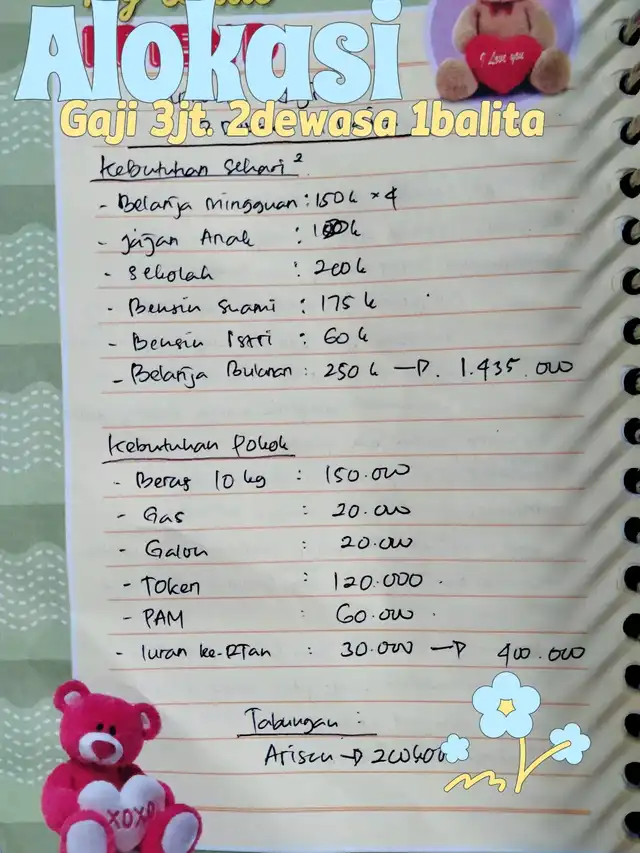 Alokasi
I Love you
Gaji 3jt. 2dewasa 1balita
Kebutuhan Sehari²
- Belanja Mingguan : 150k × 4
- Jajan Anak :
- Sekolah : 200k
- Bensin Suami : 175k
- Bensin Istri : 60k
- Belanja Bulanan : 250k → 1.435.000
Kebutuhan Pokok
- Beras 10 kg : 150.000
- Gas : 20.000
- Galon : 20.000
- Token : 120.000
- PAM : 60.000
- Iuran ke-RTan : 30.000 → 400.000
Tabungan :
Arisan →
XOXO